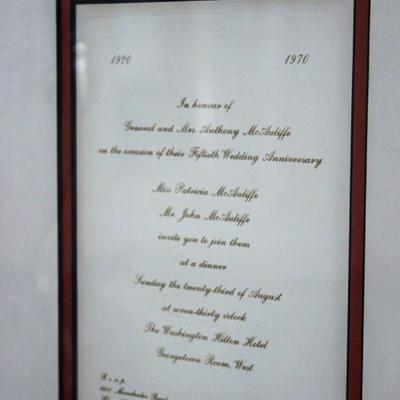 1920 1970
In honour of
General and Mrs. Anthony McAuliffe
on the occasion of their Fiftieth Wedding Anniversary
Miss Patricia McAuliffe
Mr. John McAuliffe
invite you to join them
at a dinner
Sunday the twenty-third of August
at seven-thirty o'clock
The Washington Hilton Hotel
Georgetown Room, West
R.s.v.p.